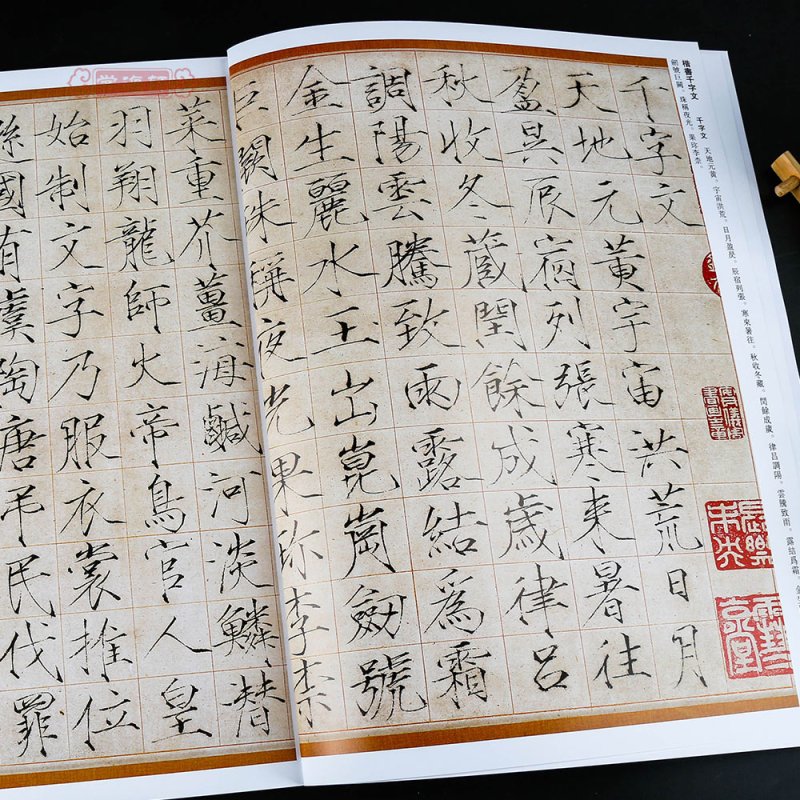 楷書千字文　千字文　天地元黄。宇宙洪荒。日月盈昃。辰宿列張。寒來暑往。秋收冬藏。閏餘成歲。律吕調陽。雲騰致雨。露結爲霜。
劍號巨闕。珠稱夜光。果珍李柰。
千字文
天地元黄宇宙洪荒日月
盈昃辰宿列張寒来暑往
秋收冬藏閏餘成歳律吕
調陽雲騰致雨露結為霜
金生麗水玉出崑崗劒號
巨闕珠稱夜光果珎李柰
菜重芥薑海鹹河淡鱗潜
羽翔龍師火帝鳥官人皇
始制文字乃服衣裳推位
國有虞陶唐弔民伐罪